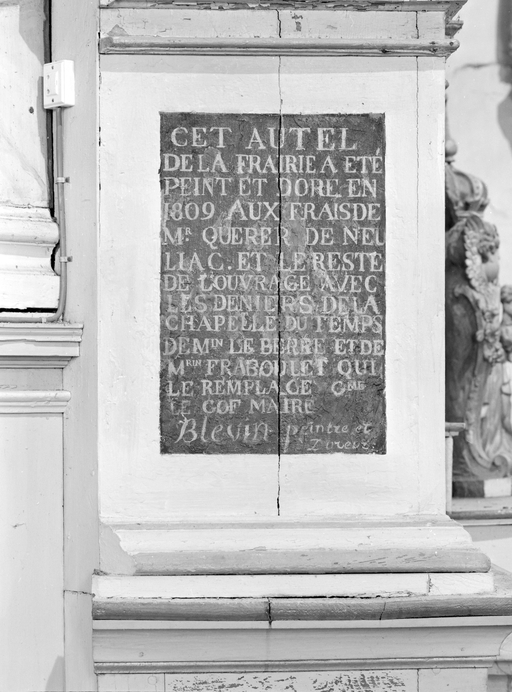 CET AUTEL
DE LA FRAIRIE A ETÉ
PEINT ET DORE EN
1809 AUX FRAIS DE
MR. QUERER DE NEU
LIAC. ET LE RESTE
DE LOUVRAGE AVEC
LES DENIERS DE LA
CHAPELLE DU TEMPS
DE MIN LE BERRE ET DE
MRIN FRABOULET QUI
LE REMPLACE GME
LE COF MAIRE
Blevin peintre et
Doreur